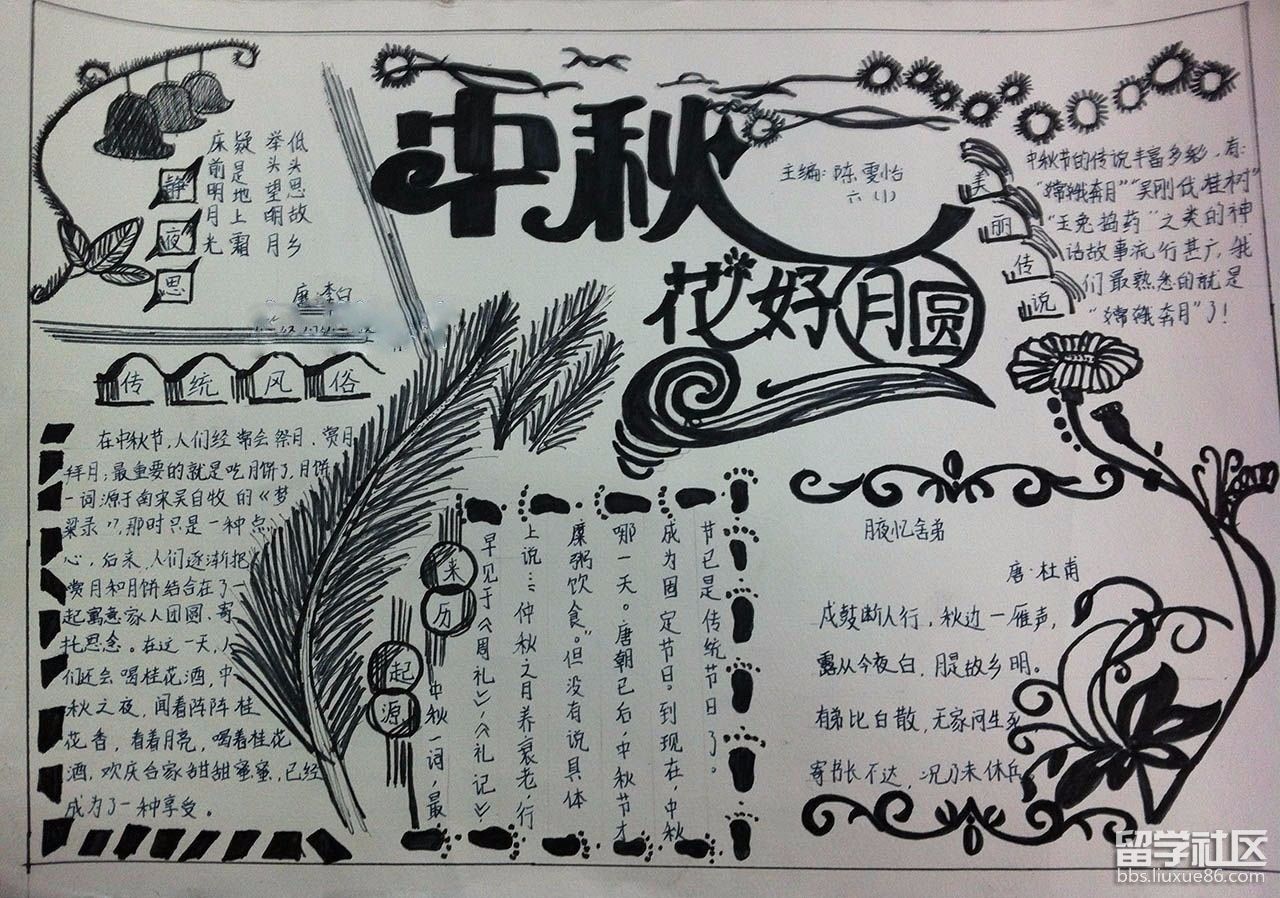 中秋
花好月圆
主编：陈雯怡
六（1）
静夜思
床前明月光
疑是地上霜
举头望明月
低头思故乡
唐·李白
美丽传说
中秋节的传说丰富多彩，有：
“嫦娥奔月”“吴刚伐桂树”
“玉兔捣药”之类的神
话故事流行甚广，我
们最熟悉的就是
“嫦娥奔月”了！
传统风俗
在中秋节，人们经常会祭月、赏月
拜月；最重要的就是吃月饼了，月饼
一词源于南宋吴自牧的《梦
粱录》，那时只是一种点
心，后来，人们逐渐把
赏月和月饼结合在了一
起寓意家人团圆、寄
托思念。在这一天，人
们还会喝桂花酒，中
秋之夜，闻着阵阵桂
花香，看着月亮，喝着桂花
酒，欢庆合家甜甜蜜蜜，已经
成为了一种享受。
来历
起源
中秋一词，最
早见于《周礼》，《礼记》
上说：“仲秋之月养衰老，行
糜粥饮食。”但没有说具体
哪一天。唐朝已后，中秋节才
成为固定节日。到现在，中秋
节已是传统节日了。
月夜忆舍弟
唐·杜甫
戍鼓断人行，秋边一雁声，
露从今夜白，月是故乡明。
有弟比白散，无家问生死
寄书长不达，况乃未休兵。
留学社区
bbs.liuxue86.com